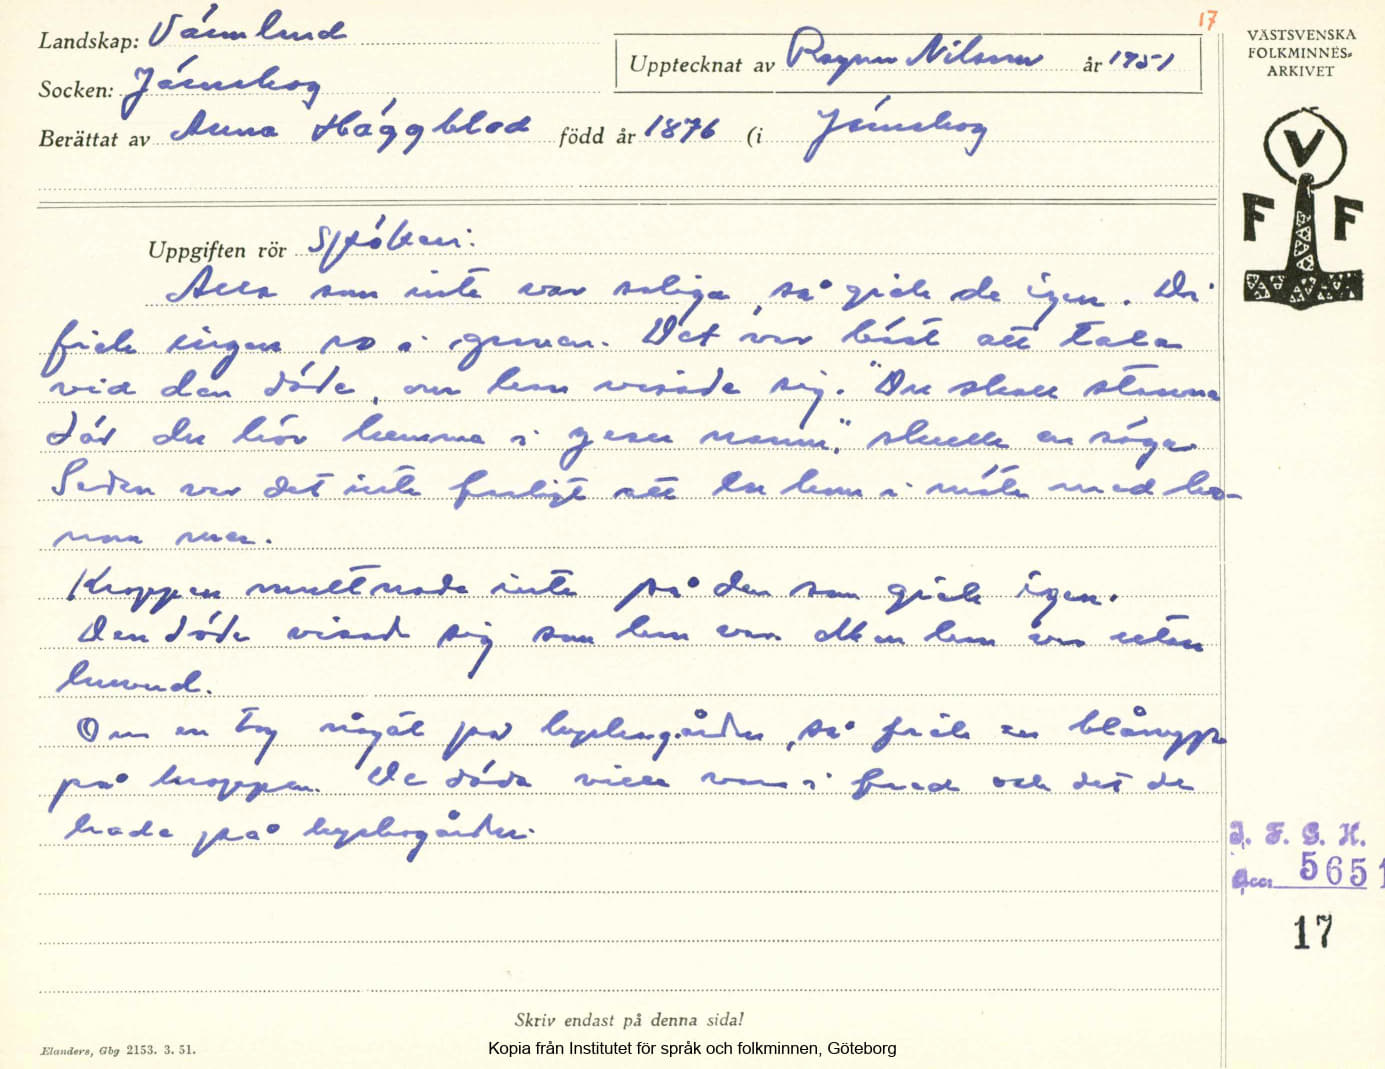 17
Landskap: Värmland
Upptecknat av Ragnar Nilsson år 1951
Socken: Järnskog
Berättat av Anna Häggblad född år 1876 (i Järnskog
VÄSTSVENSKA
FOLKMINNES-
ARKIVET
V
F F
Uppgiften rör Spökeri.
Alla som inte var saliga, så gick de igen. Di
fick ingen ro i graven. Det var bäst att tala
vid den döde, om han visade sig. "Du skall stanna
där du hör hemma i Jesu namn," skulle en säga.
Sedan var det inte farligt att han kom i möte med ho-
nom mer.
Kroppen multnade inte på den som gick igen.
Den döde visade sig som han var. Men han var utan
huvud.
Om en tog något på kyrkogården, så fick en blånypa
på kroppen. De döda ville vara i fred och det de
hade på kyrkogården.
I. F. G. H.
Acc: 5651
17
Skriv endast på denna sida!
Elanders, Gbg 2153. 3. 51.
Kopia från Institutet för språk och folkminnen, Göteborg